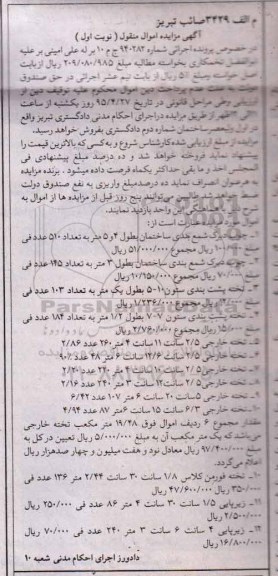 م الف ۳۴۲۹ صائب تبریز
آگهی مزایده اموال منقول ( نوبت اول )
در خصوص پرونده اجرائی شماره ۹۴۰۲۸۲ ج ۱۰ برله علی امینی بر علیه
ابوالفضل تخمکاری بخواسته مطالبه مبلغ ۲۰۹/۰۸۰/۹۸۵ ریال از بابت
اصل خواسته ومبلغ ریال از بابت نیم عشر اجرائی در حق صندوق
دولت به علت عدم پرداخت دین اموال محکوم علیه توقیف پس از
ارزیابی وطی مراحل قانونی در تاریخ ۹۵/۴/۲۷ روز یکشنبه از ساعت
الی ظهر از طریق مزایده دراجرای احکام مدنی دادگستری تبریز واقع
در اول ولیعصرساختمان شماره دوم دادگستری بفروش خواهد رسید.
مزایده از مبلغ ارزیابی شده کارشناس شروع و به کسی که بالاترین قیمت را
پیشنهاد نماید فروخته خواهد شد و ده درصد مبلغ پیشنهادی فی
المجلس اخذ و ما بقی حداکثر یکماه فرصت داده میشود . برنده مزایده
به هرعنوان انصراف نماید ده درصدمبلغ واریزی به نفع صندوق دولت
ضبط می توانند پنج روز قبل از مزایده ها از اموال به
این واحد بازدید نمایند.
عبارت است از:
شمع بندی ساختمان بطول ۴ و ۵ متر به تعداد ۵۱۰ عدد فی
مبلغ ریال مبلغ ۵۱/۰۰۰/۰۰۰ ریال
شمع بندی ساختمان بطول ۳ متر به تعداد ۱۴۵ عدد فی
مبلغ ۷۰/۰۰۰ ریال مبلغ ۱۰/۱۵۰/۰۰۰ ریال
تخته پشت بندی ستون بطول یک متر به تعداد ۱۰۳ عدد فی
ریال مبلغ ریال
تخته پشت بندی ستون بطول ۱/۲ متر به تعداد ۱۸۴ عدد فی
مبلغ ۱۵/۰۰۰ ریال مبلغ ۲/۷۶۰/۰۰۰ ریال
تخته خارجی ۲/۵ سانت ۱۱ سانت ۴ متر ۲۶۰ عدد ۲/۸۶
تخته خارجی ۲/۵ سانت ۱۲/۶ سانت ۶ متر ۴۸ عدد
تخته خارجی ۲/۵ سانت ۱۰ سانت ۴ متر ۲۲۰ عدد ۲/۲۰
تخته خارجی ۲/۵ سانت ۱۲ سانت ۳ متر ۲۴۰ عدد ۲/۱۶
تخته خارجی ۵ سانت ۲۰ سانت ۶ متر ۱۰۷ عدد ۶/۴۲
۱۰-تخته خارجی ۶/۳ سانت ۱۵ سانت ۶متر ۸۷ عدد ۴/۹۴
مقدار مجموع ۶ ردیف اموال فوق ۱۹/۴۸ متر مکعب تخته خارجی
می‌باشد که یک متر مکعب آن به مبلغ ۵/۰۰۰/۰۰۰ ریال تعیین در کل به
مبلغ ۹۷/۴۰۰/۰۰۰ ریال معادل نود و هفت میلیون و چهار صدهزار ریال
اعلام می‌گردد.
تخته فورمن کلاس ۱/۸ سانت ۳۰ سانت ۲/۴۴ متر ۱۳۶ عدد فی
۳۵۰/۰۰۰ ریال ۴۷/۶۰۰/۰۰۰ ریال
زیرپایی ۱/۵ سانت ۳۰ سانت ۴ متر ۸۶ عدد فی ۲۵۰/۰۰۰ ریال
ریال
۱۲- زیرپایی ۴ سانت ۶ سانت ۳ متر ۲۴۰ عدد فی ۷۰/۰۰۰ ریال
۱۶/۸۰۰/۰۰۰ ریال
دادورز اجرای احکام مدنی شعبه ۱۰